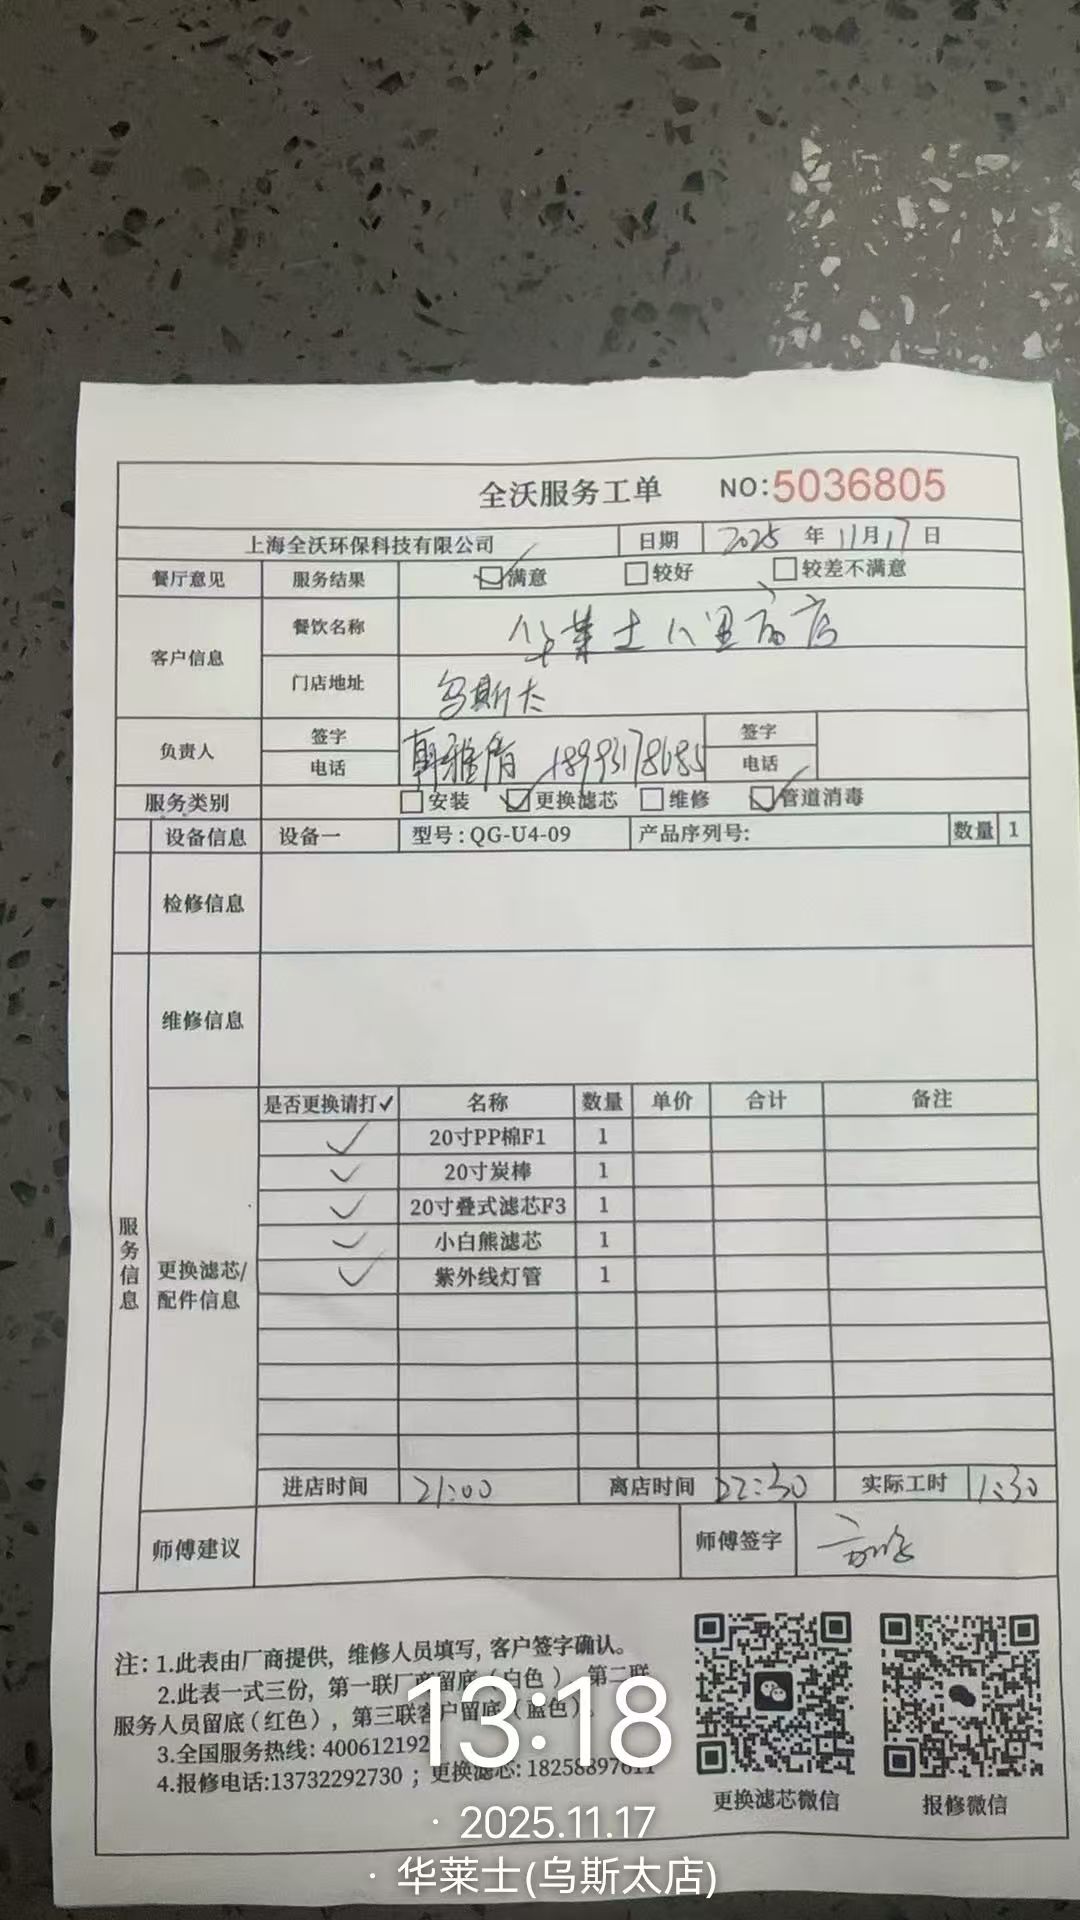 全沃服务工单 NO:5036805
上海全沃环保科技有限公司 日期 2025 年 11月17日
餐厅意见 服务结果 满意 较好 较差不满意
客户信息 餐饮名称 华莱士八里庙店
门店地址 乌斯太
负责人 签字 签字
电话 18993178685 电话
服务类别 安装 更换滤芯 维修 管道消毒
设备信息 设备一 型号:QG-U4-09 产品序列号: 数量 1
检修信息
维修信息
服务信息
更换滤芯/配件信息
是否更换请打✓ 名称 数量 单价 合计 备注
✓ 20寸PP棉F1 1
✓ 20寸炭棒 1
✓ 20寸叠式滤芯F3 1
✓ 小白熊滤芯 1
✓ 紫外线灯管 1
进店时间 21:00 离店时间 22:30 实际工时 1:30
师傅建议 师傅签字
注: 1.此表由厂商提供，维修人员填写，客户签字确认。
2.此表一式三份，第一联厂商留底（白色），第二联
服务人员留底（红色），第三联客户留底（蓝色）。
3.全国服务热线: 400612192
4.报修电话:13732292730；更换滤芯: 18258897611
更换滤芯微信 报修微信
13:18
· 2025.11.17
· 华莱士(乌斯太店)